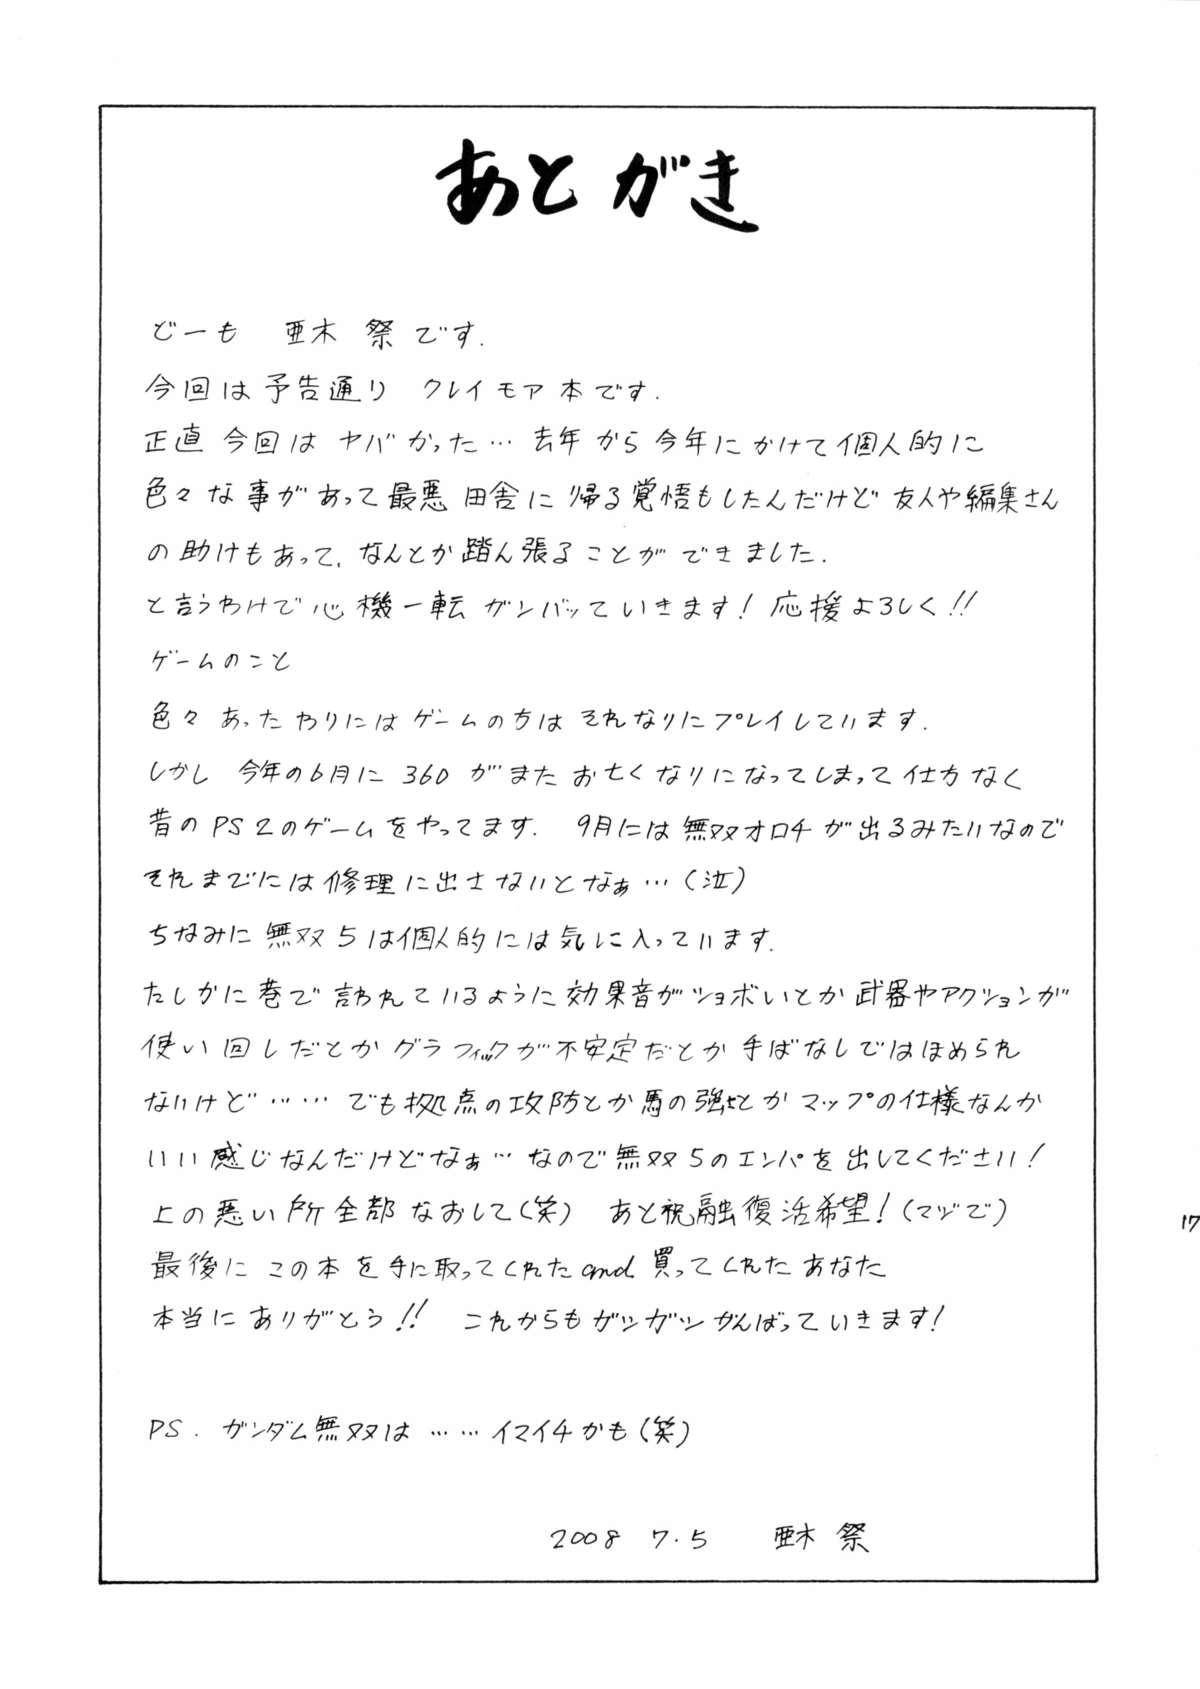 あとがき
どーも 亜木 祭です.
今回は予告通り クレイモア本です.
正直今回はヤバかった…去年から今年にかけて個人的に
色々な事があって最悪田舎に帰る覚悟もしたんだけど友人や編集さん
の助けもあって、なんとか踏ん張ることができました.
と言うわけで心機一転ガンバッていきます!応援よろしく!!
ゲームのこと
色々あったわりにはゲームの方はそれなりにプレイしています.
しかし 今年の6月に 360 がまたお亡くなりになってしまって仕方なく
昔のPS2のゲームをやってます. 9月には無双オロチが出るみたいなので
それまでには修理に出さないとなぁ…(泣)
ちなみに無双5は個人的には気に入っています.
たしかに巷で言われているように効果音がショボいとか武器やアクションが
使い回しだとかグラフィックが不安定だとか手ばなしではほめられ
ないけど……でも拠点の攻防とか馬の強さとかマップの仕様なんか
いい感じなんだけどなぁ…なので無双5のエンパを出してください!
上の悪い所全部なおして(笑) あと祝融復活希望!(マヅで)
最後にこの本を手に取ってくれたand買ってくれたあなた
本当にありがとう!! これからもガツガツがんばっていきます!
PS. ガンダム無双は……イマイチかも(笑)
2008 7.5 亜木 祭
17